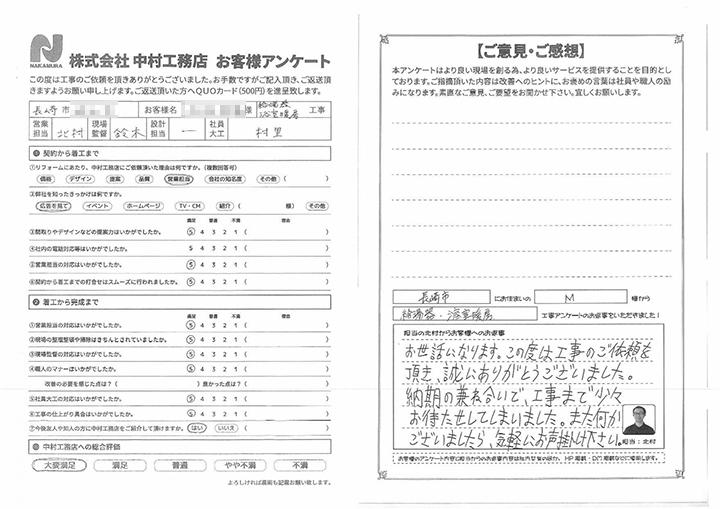 NAKAMURA
株式会社 中村工務店 お客様アンケート
この度は工事のご依頼を頂きありがとうございました。お手数ですがご記入頂き、ご返送頂
きますようお願い申し上げます。ご返送頂いた方へQUOカード(500円)を進呈致します。
長崎市 お客様名 様 給湯器 浴室暖房 工事
営業担当 北村 現場監督 鈴木 設計担当 ー 社員大工 村里
❶ 契約から着工まで
①リフォームにあたり、中村工務店にご依頼頂いた理由は何ですか。(複数回答可)
価格 デザイン 提案 品質 営業担当 会社の知名度 その他( )
②弊社を知ったきっかけは何ですか。
広告を見て イベント ホームページ TV・CM 紹介( 様) その他
満足 普通 不満 理由
③間取りやデザインなどの提案力はいかがでしたか。 5 4 3 2 1 ( )
④社内の電話対応等はいかがでしたか。 5 4 3 2 1 ( )
⑤営業担当の対応はいかがでしたか。 5 4 3 2 1 ( )
⑥契約から着工までの打合せはスムーズに行われましたか。 5 4 3 2 1 ( )
❷ 着工から完成まで
満足 普通 不満 理由
①営業担当の対応はいかがでしたか。 5 4 3 2 1 ( )
②現場の整理整頓や掃除はきちんとされていましたか。 5 4 3 2 1 ( )
③現場監督の対応はいかがでしたか。 5 4 3 2 1 ( )
④職人のマナーはいかがでしたか。 5 4 3 2 1 ( )
改善の必要を感じた点は?( ) 良かった点は?( )
⑤社員大工の対応はいかがでしたか。 5 4 3 2 1 ( )
⑥工事の仕上がり具合はいかがでしたか。 5 4 3 2 1 ( )
⑦今後友人や知人の方に中村工務店をご紹介して頂けますか。 はい いいえ ( )
❸ 中村工務店への総合評価
大変満足 満足 普通 やや不満 不満
よろしければ裏面も記載お願い致します。
【ご意見・ご感想】
本アンケートはより良い現場を創る為、より良いサービスを提供することを目的とし
ております。ご指摘頂いた内容は改善へのヒントに、お褒めの言葉は社員や職人の励
みになります。素直なご意見、ご要望をお聞かせ下さい。宜しくお願いします。
長崎市 にお住まいの M 様から
給湯器・浴室暖房 工事アンケートのお返事をいただきました！
担当の北村からお客様へのお返事
お世話になります。この度は工事のご依頼を
頂き、誠にありがとうございました。
納期の兼ね合いで、工事まで少々
お待たせしてしまいました。また何か
ございましたら、気軽にお声掛け下さい。
担当:北村